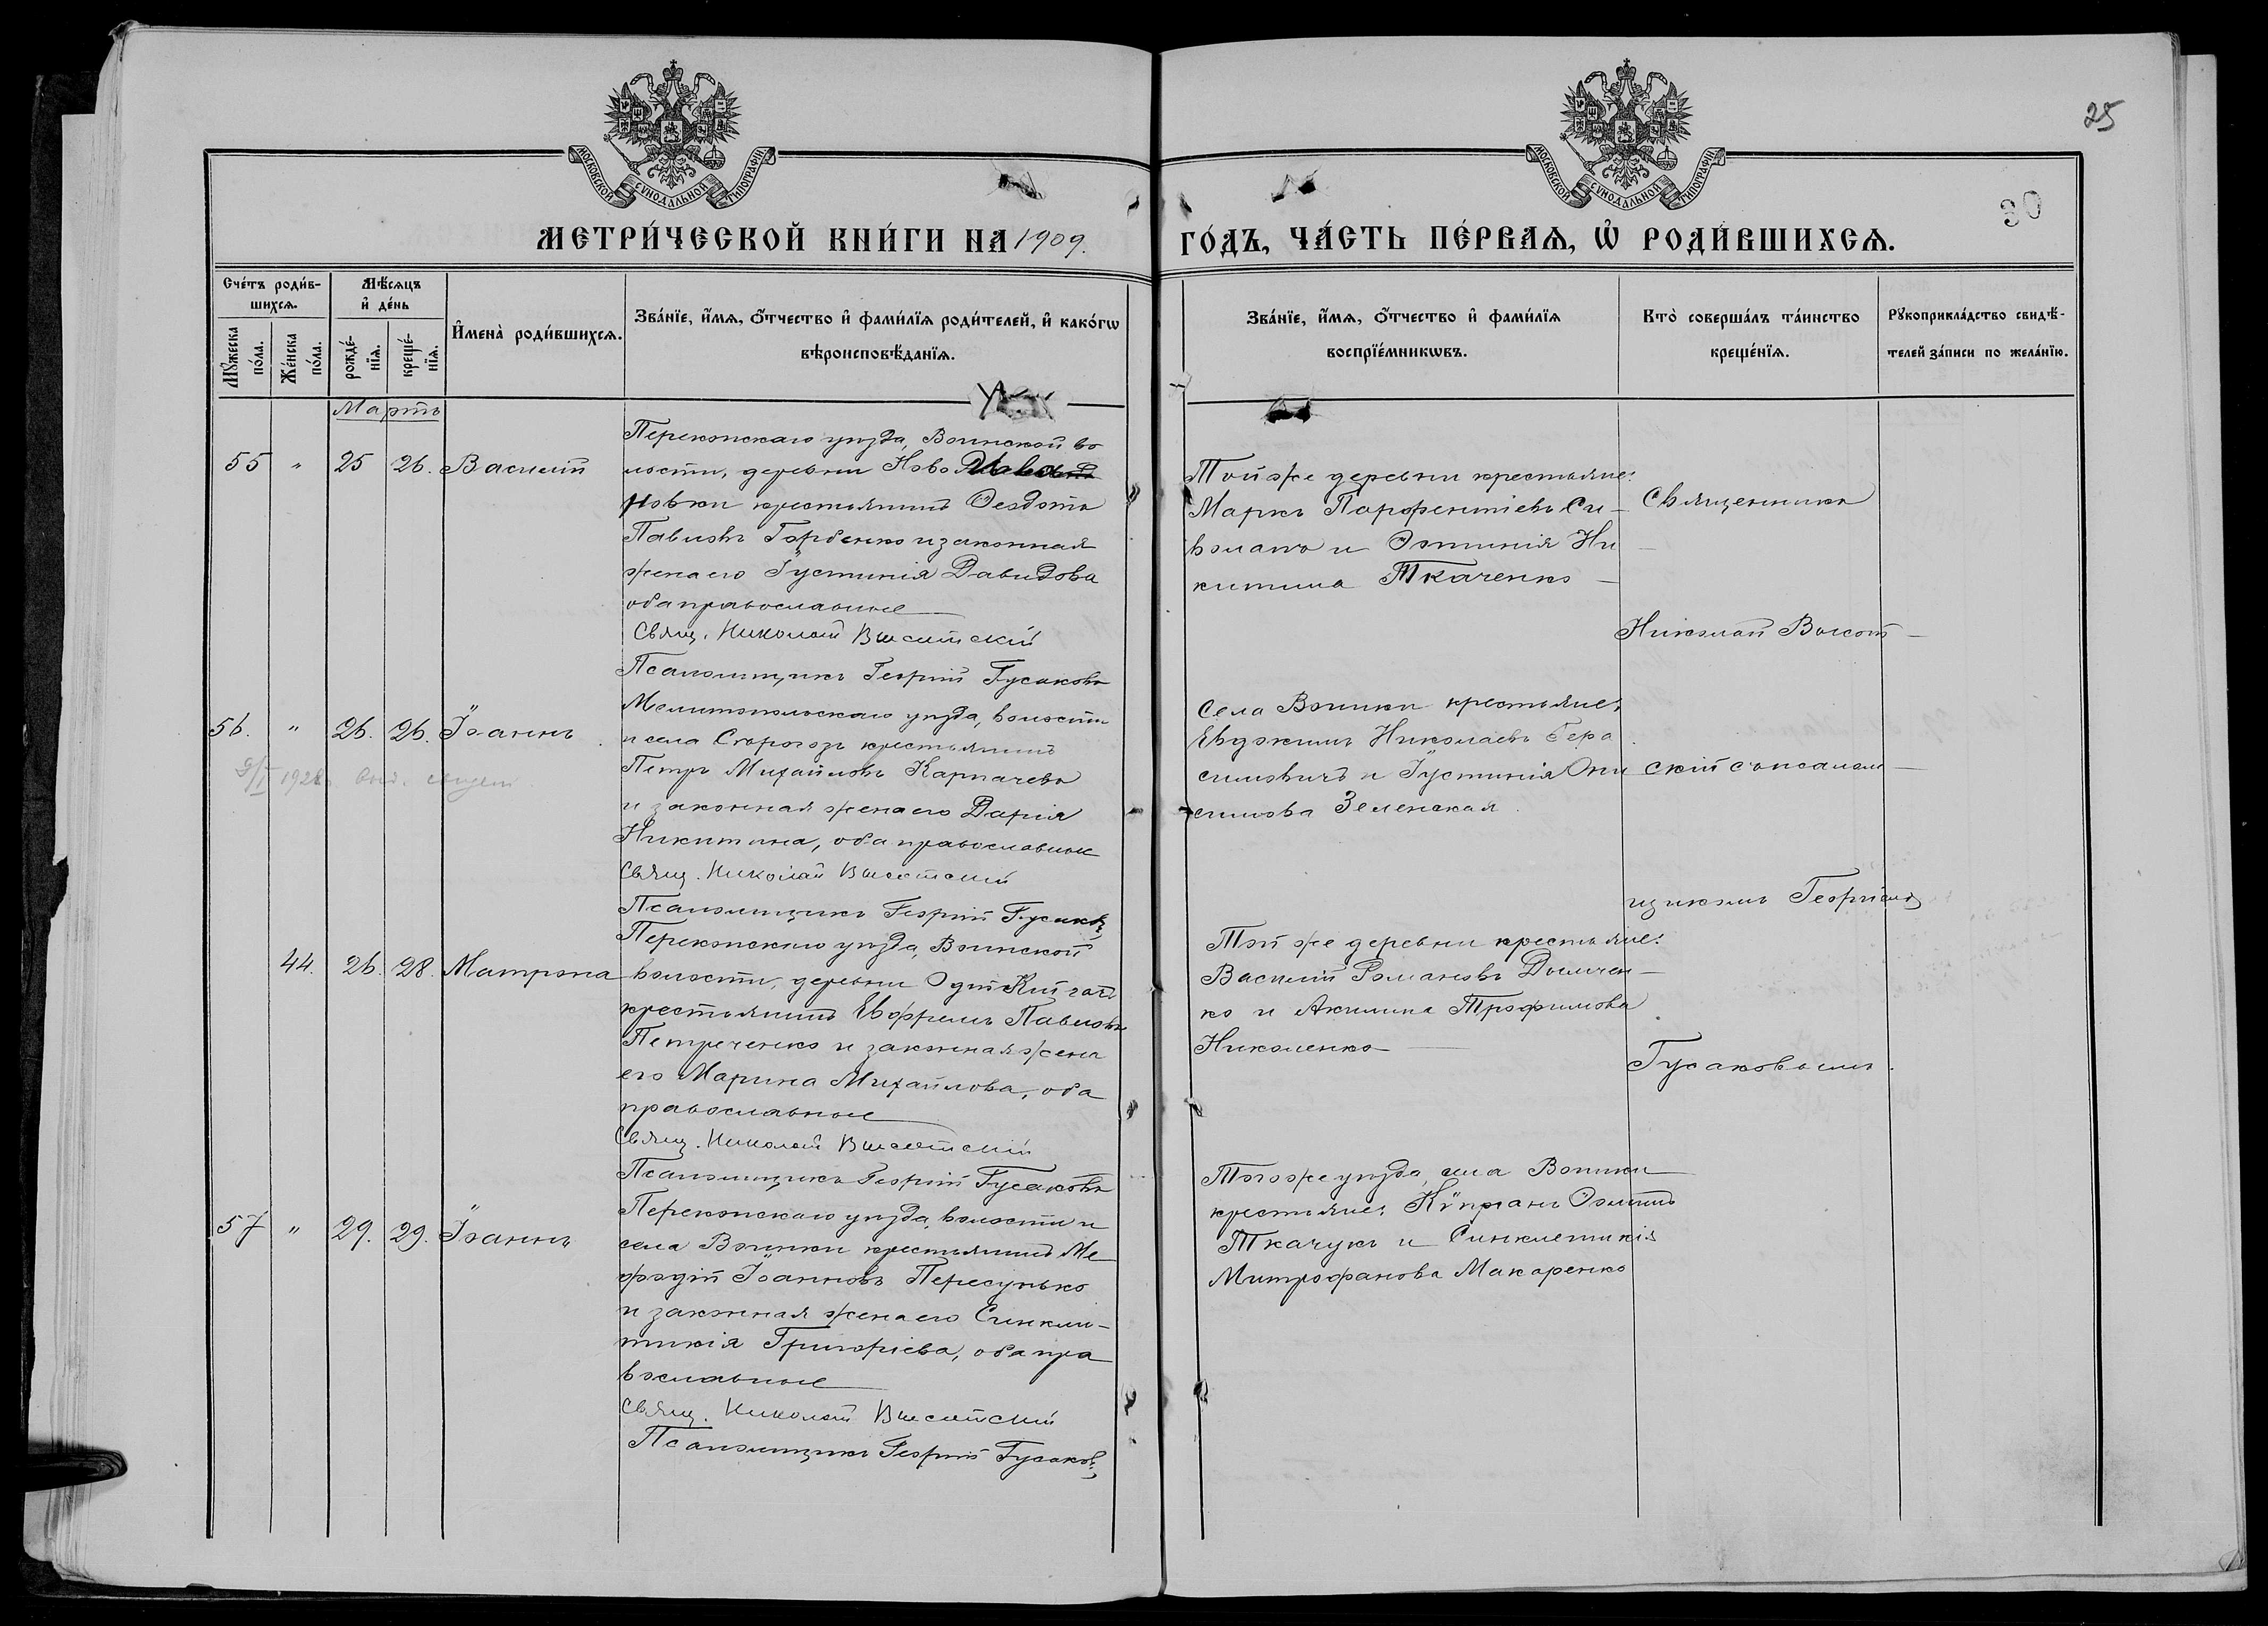 25
30
МОСКОВСКОЙ СѴНОДАЛЬНОЙ ТИПОГРАФІИ
МОСКОВСКОЙ СѴНОДАЛЬНОЙ ТИПОГРАФІИ
МЕТРИ́ЧЕСКОЙ КНИ́ГИ НА 1909.
ГО́ДЪ, ЧА́СТЬ ПЕ́РВАѦ, Ѡ҆ РОДИ́ВШИХСѦ.
Сче́тъ роди́в-
шихсѧ.
Мꙋ́жеска по́ла.
Же́нска по́ла.
Мѣ́сѧцъ
и҆ де́нь
рожде́-
нїѧ.
креще́-
нїѧ.
И҆мена̀ роди́вшихсѧ.
Зва́нїе, и҆́мѧ, ѻ҆́тчество и҆ фами́лїѧ роди́телей, и҆ како́гѡ
вѣроисповѣ́данїѧ.
Зва́нїе, и҆́мѧ, ѻ҆́тчество и҆ фами́лїѧ
воспрїе́мникѡвъ.
Кто̀ соверша́лъ та́инство
креще́нїѧ.
Рꙋкоприкла́дство свидѣ́-
телей за́писи по жела́нїю.
Мартъ
55 " 25 26. Василій
Перекопскаго уѣзда, Воинской во
лости, деревни Ново
новки крестьянинъ Ѳеодотъ
Павловъ Горбенко и законная
жена его Іустинія Давидова
оба православные
Свящ. Николай Высотскій
Псаломщикъ Георгій Гусаковъ
Той же деревни крестьяне:
Маркъ Парфентіевъ Си-
воланъ и Ни
китина Ткаченко
Священникъ
Николай Высот-
56. " 26. 26. Іоаннъ
1928
Мелитопольскаго уѣзда, волости
и села Сѣрогозъ крестьянинъ
Петръ Михайловъ Карпачевъ
и законная жена его Дарія
Никитина, оба православные
Свящ. Николай Высотскій
Псаломщикъ Георгій Гусаковъ
Села Воинки крестьяне:
Евдокимъ Николаевъ Гера
симовичъ и Іустинія Они
симова Зеленская.
скій съ псалом-
щикомъ Георгіемъ
44. 26. 28. Матрона
Перекопскаго уѣзда, Воинской
волости, деревни Кипчакъ
крестьянинъ Евфремъ Павловъ
Петреченко и законная жена
его Марина Михайлова, оба
православные
Свящ. Николай Высотскій
Псаломщикъ Георгій Гусаковъ
Той же деревни крестьяне:
Василій Романовъ
ко и Акилина Трофимова
Николенко
Гусаковымъ.
57 " 29. 29. Іоаннъ
Перекопскаго уѣзда, волости и
села Воинки крестьянинъ Ме
ѳодій Іоанновъ Пересунько
и законная жена его Синкли-
тикія Григоріева, оба пра
вославные
Свящ. Николай Высотскій
Псаломщикъ Георгій Гусаковъ
Того же уѣзда, села Воинки
крестьяне: Кипріанъ Ѳоминъ
Ткачукъ и Синклетикія
Митрофанова Макаренко